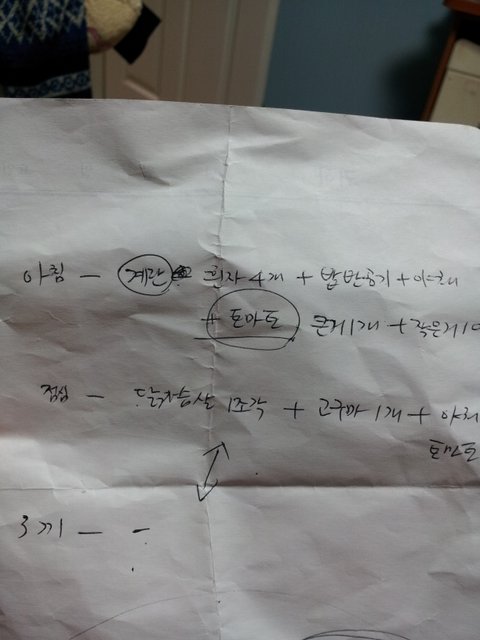 아침 - 계란 흰자 4개 + 밥 반공기 + 야채
+ 토마토 큰거 1개 + 작은거 1
점심 - 닭가슴살 1조각 + 고구마 1개 + 야채
토마토
3끼 - -